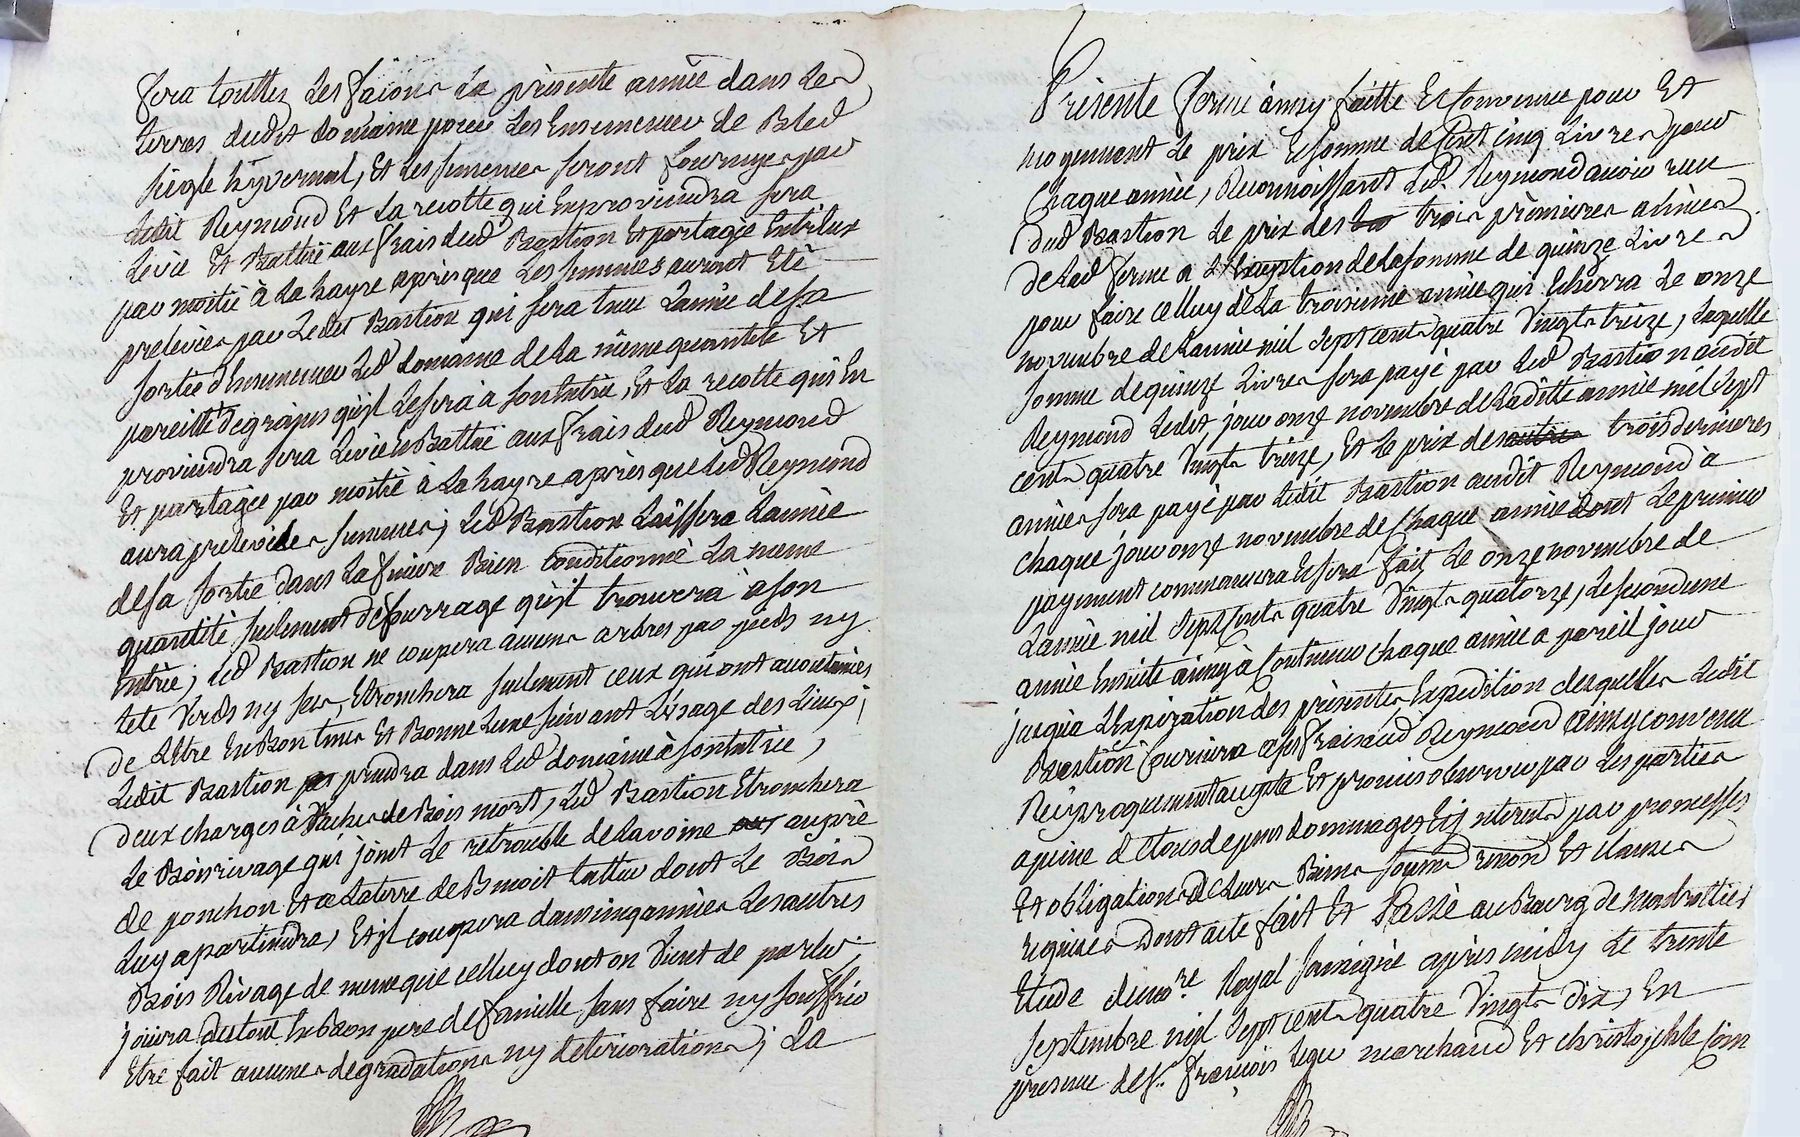 fera touttes les façons la présente année dans les
terres dudit domaine pour les Ensemencer de Bled
seigle hyvernal, Et les semences seront fournyes par
Ledit Reymond Et La recolte qui En proviendra sera
Levée Et Battüe aux frais dud Bastion Et partagée Entr'Eux
par moitié à La hayre après que Les semences auront Eté
prelevées par Ledit Bastion qui sera tenu L'année de sa
sortie d'Ensemencer Led domaine de La même quantité Et
pareille de grains qu'il Le sera à son Entrée, Et La recolte qui En
proviendra sera Levée Et Battüe aux frais dud Reymond
Et partagée par moitié à La hayre après que Led Reymond
aura prelevé les semences; Led Bastion Laissera L'année
de sa sortie dans La feniere Bien Conditionné La meme
quantité seulement de fourrage qu'il trouvera à son
Entrée; Led Bastion ne coupera aucuns arbres par pieds ny
tete verds ny secs, Etronchera seulement ceux qui ont accoutumés
de L'Etre En Bon tems Et Bonne Lune suivant L'usage des Lieux;
Ledit Bastion prendra dans Led domaine à son Entrée,
deux charges à Vaches de Bois mort, Led Bastion Etronchera
Le Bois rivage qui joint Le retrouble de Lavoine auprès
de ponchon Et La terre de Benoit dont Le Bois
Luy apartiendra, Et il coupera dans cinq années Les autres
Bois Rivage de meme que celluy dont on Vient de parler;
joüira du tout En Bon pere de famille sans faire ny souffrir
Etre fait aucunes degradations ny deteriorations; La
Présente ferme ainsy faitte Et Convenue pour Et
moyennant Le prix Et somme de Cent cinq Livres pour
Chaque année, Reconnoissant Led. Reymond avoir reçu
dud Bastion Le prix des trois premieres années
de Lad ferme a L'Exception de La somme de quinze Livres
pour faire celluy de La troisieme année qui Echerra Le onze
novembre de L'année mil sept cent quatre Vingt treize, Laquelle
somme de quinze Livres sera payé par Led Bastion audit
Reymond Ledit jour onze novembre de Laditte année mil sept
cent quatre Vingt treize, Et Le prix des trois dernieres
années sera payé par Ledit Bastion audit Reymond à
chaque jour onze novembre de Chaque année dont Le premier
payement commancera Et sera fait Le onze novembre de
L'année mil Sept Cent quatre Vingt quatorze, Le second une
année Ensuite ainsy à Continuer chaque année a pareil jour
jusqu'a L'Expiration des présentes Expedition desquelles Ledit
Bastion fournira a ses frais aud Reymond ainsy convenu
Reciproquement accepté Et promis observer par Les parties
a peine de tous depens dommages Et Interets par promesses
Et obligations de Leurs Biens soumis renon Et clauses
requises Dont acte fait Et Passé au Bourg de Montrottier
Etude du nore. Royal soussigné après midy Le trente
septembre mil sept cent quatre Vingt dix, En
présence de Sr. François marchand Et christophle Com